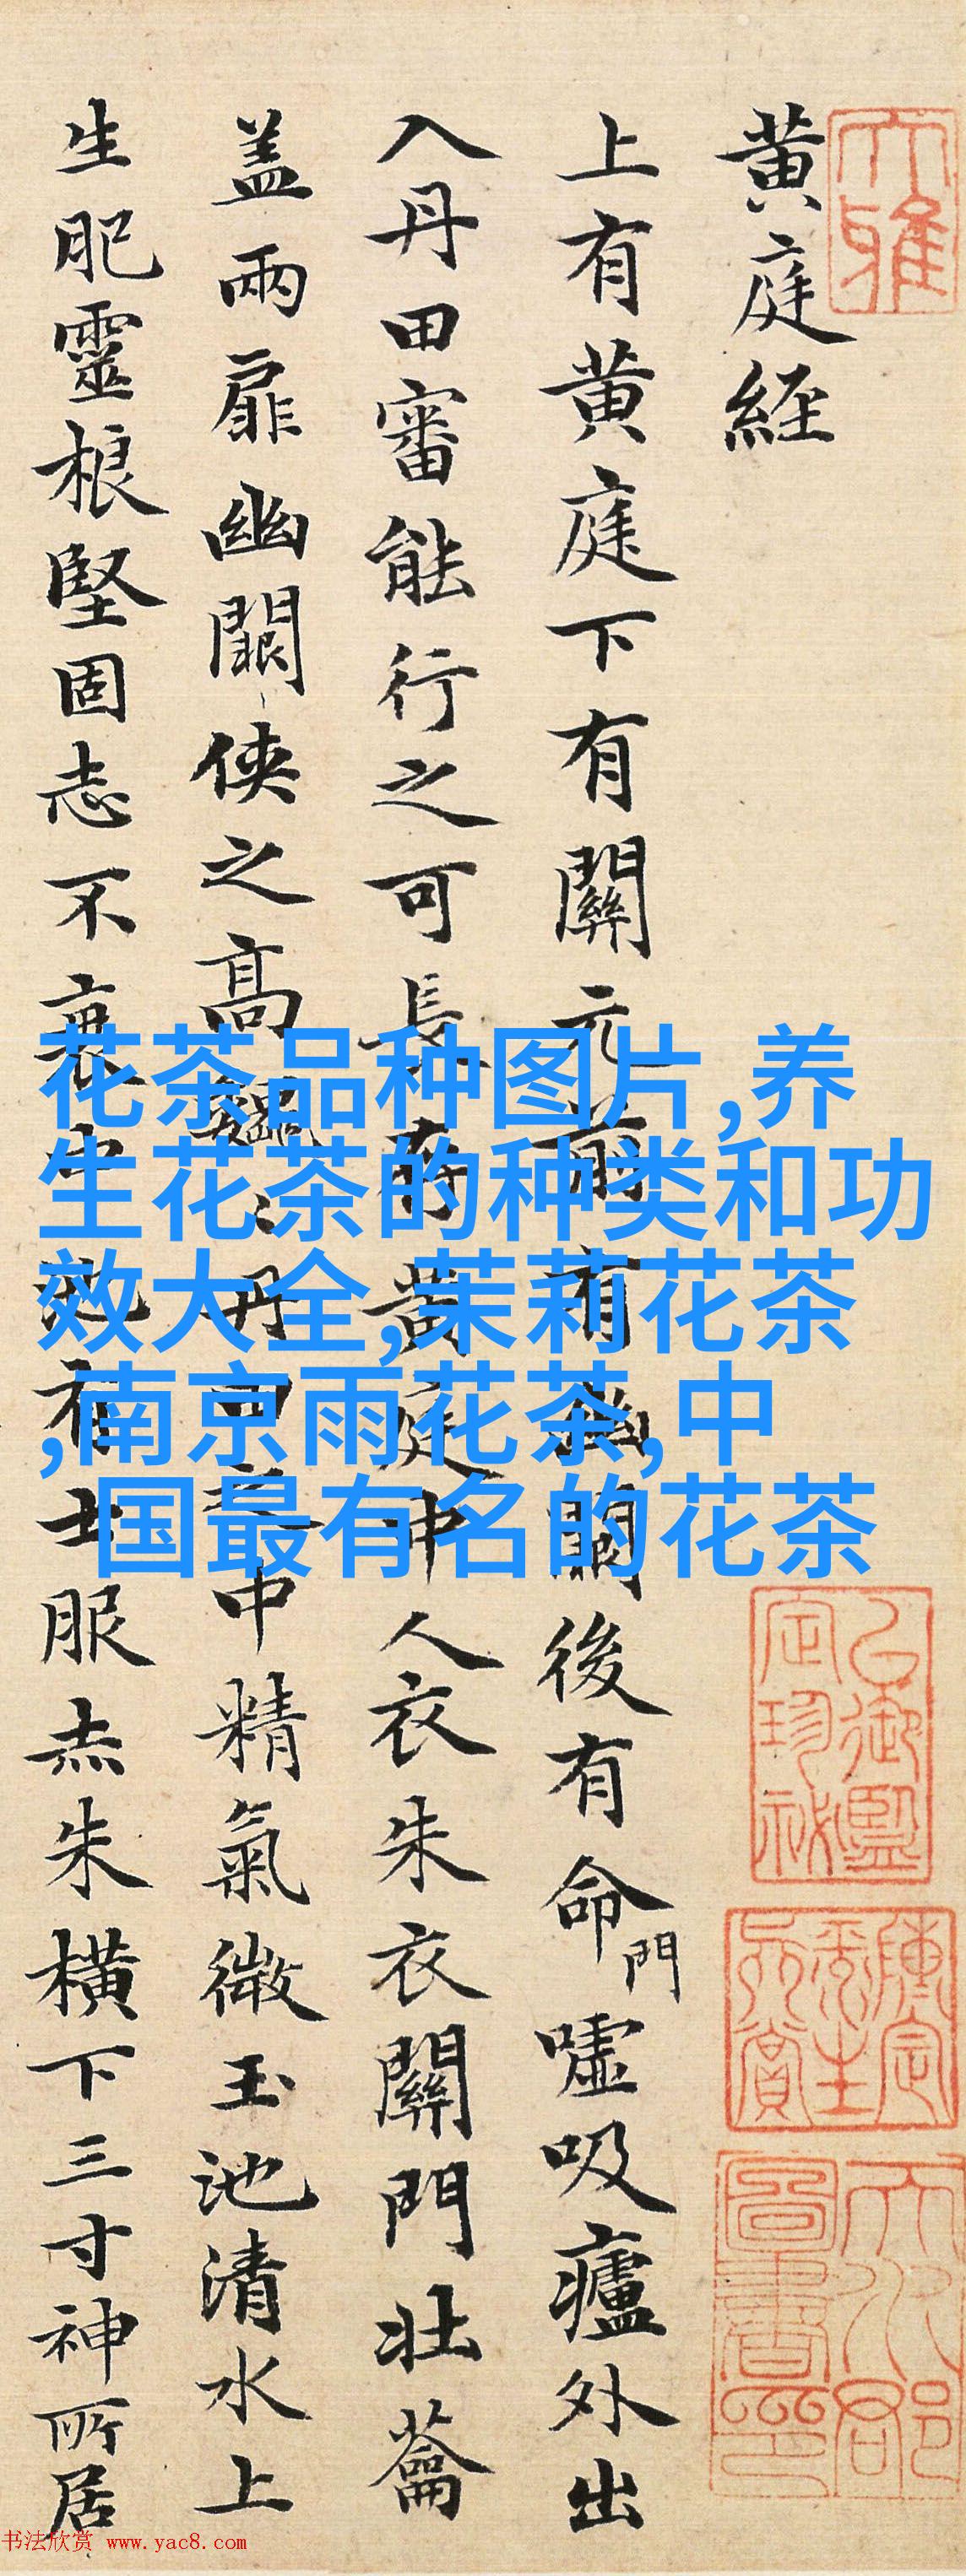 大雅
黄庭経
上有黄庭下有關元前有幽闕後有命門嘘吸廬外出
入丹田審能行之可長存黄庭中人衣朱衣關門壯蘥
盖兩扉幽闕侠之高巍〻丹田之中精氣微玉池清水上
生肥靈根堅固志不衰中池有士服赤朱横下三寸神所居
花茶品种图片,养
生花茶的种类和功
效大全,茉莉花茶
,南京雨花茶,中
国最有名的花茶
书法欣赏 www.yac8.com